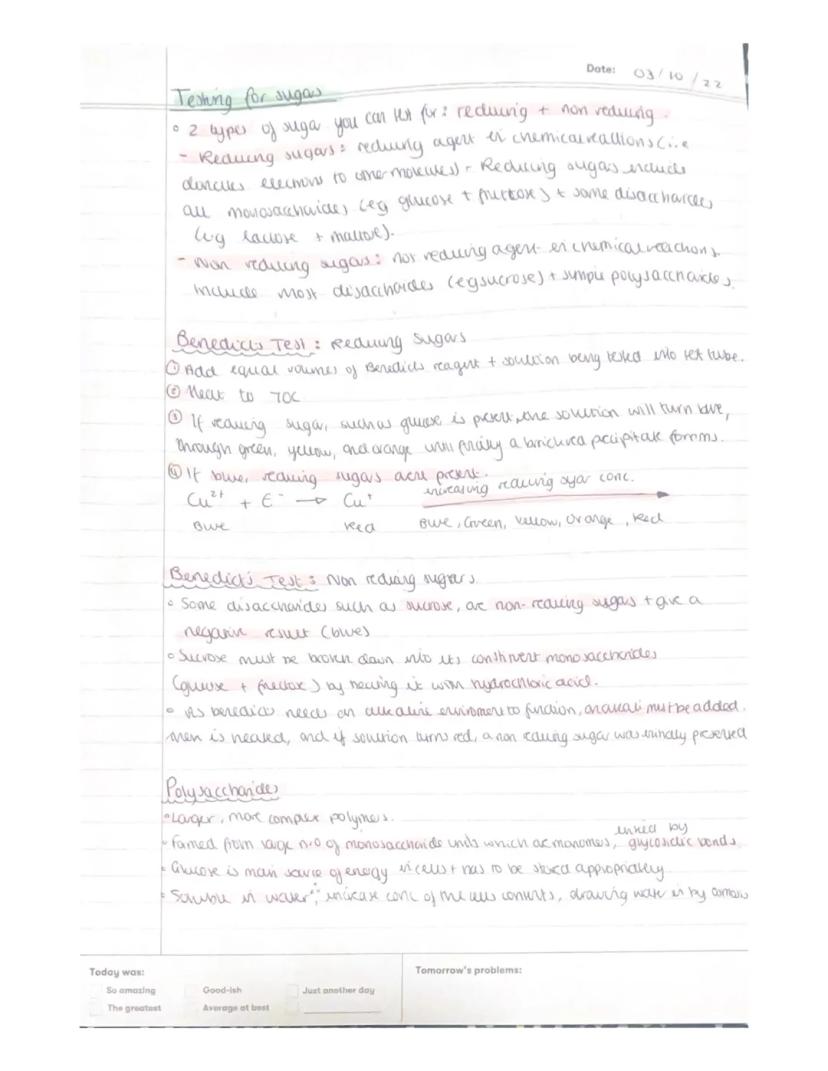 Date: 03/10/22
Testing for sugars
• 2 types of sugar you can test for: reducing + non reducing.
- Reducing sugars: reducing agent in chemical reactions (i.e
donates electrons to other molecules) - Reducing sugars include
all monosaccharides (eg glucose + fructose) + some disaccharides
(eg lactose + maltose).
- Non reducing sugars: not reducing agent in chemical reactions.
Include most disaccharides (eg sucrose) + simple polysaccharides.
Benedicts Test: Reducing Sugars
① Add equal volumes of Benedicts reagent + solution being tested into test tube.
② Heat to 70C
③ If reducing sugar, such as glucose is present, the solution will turn blue,
through green, yellow, and orange until finally a brick red precipitate forms.
④ If blue, reducing sugars present.
increasing reducing sugar conc.
Cu²⁺ + E⁻ → Cu⁺
Blue Red Blue, Green, Yellow, Orange, Red
Benedicts Test: Non reducing sugars.
• Some disaccharides such as sucrose, are non-reducing sugars + give a
negative result (blue)
• Sucrose must be broken down into its constituent monosaccharides
(glucose + fructose) by heating it with hydrochloric acid.
• As benedicts needs an alkaline enviroment to function, an alkali must be added.
then is heated, and if solution turns red, a non reducing sugar was initially presented
Polysaccharides
• Larger, more complex polymers.
linked by
• Formed from large n.o of monosaccharide units which are monomers, glycosidic bonds
• Glucose is main source of energy in cells + has to be stored appropriately
• Soluble in water ∴ increase conc of the cells contents, drawing water in by osmosis
Today was: Tomorrow's problems:
So amazing Good-ish Just another day
The greatest Average at best